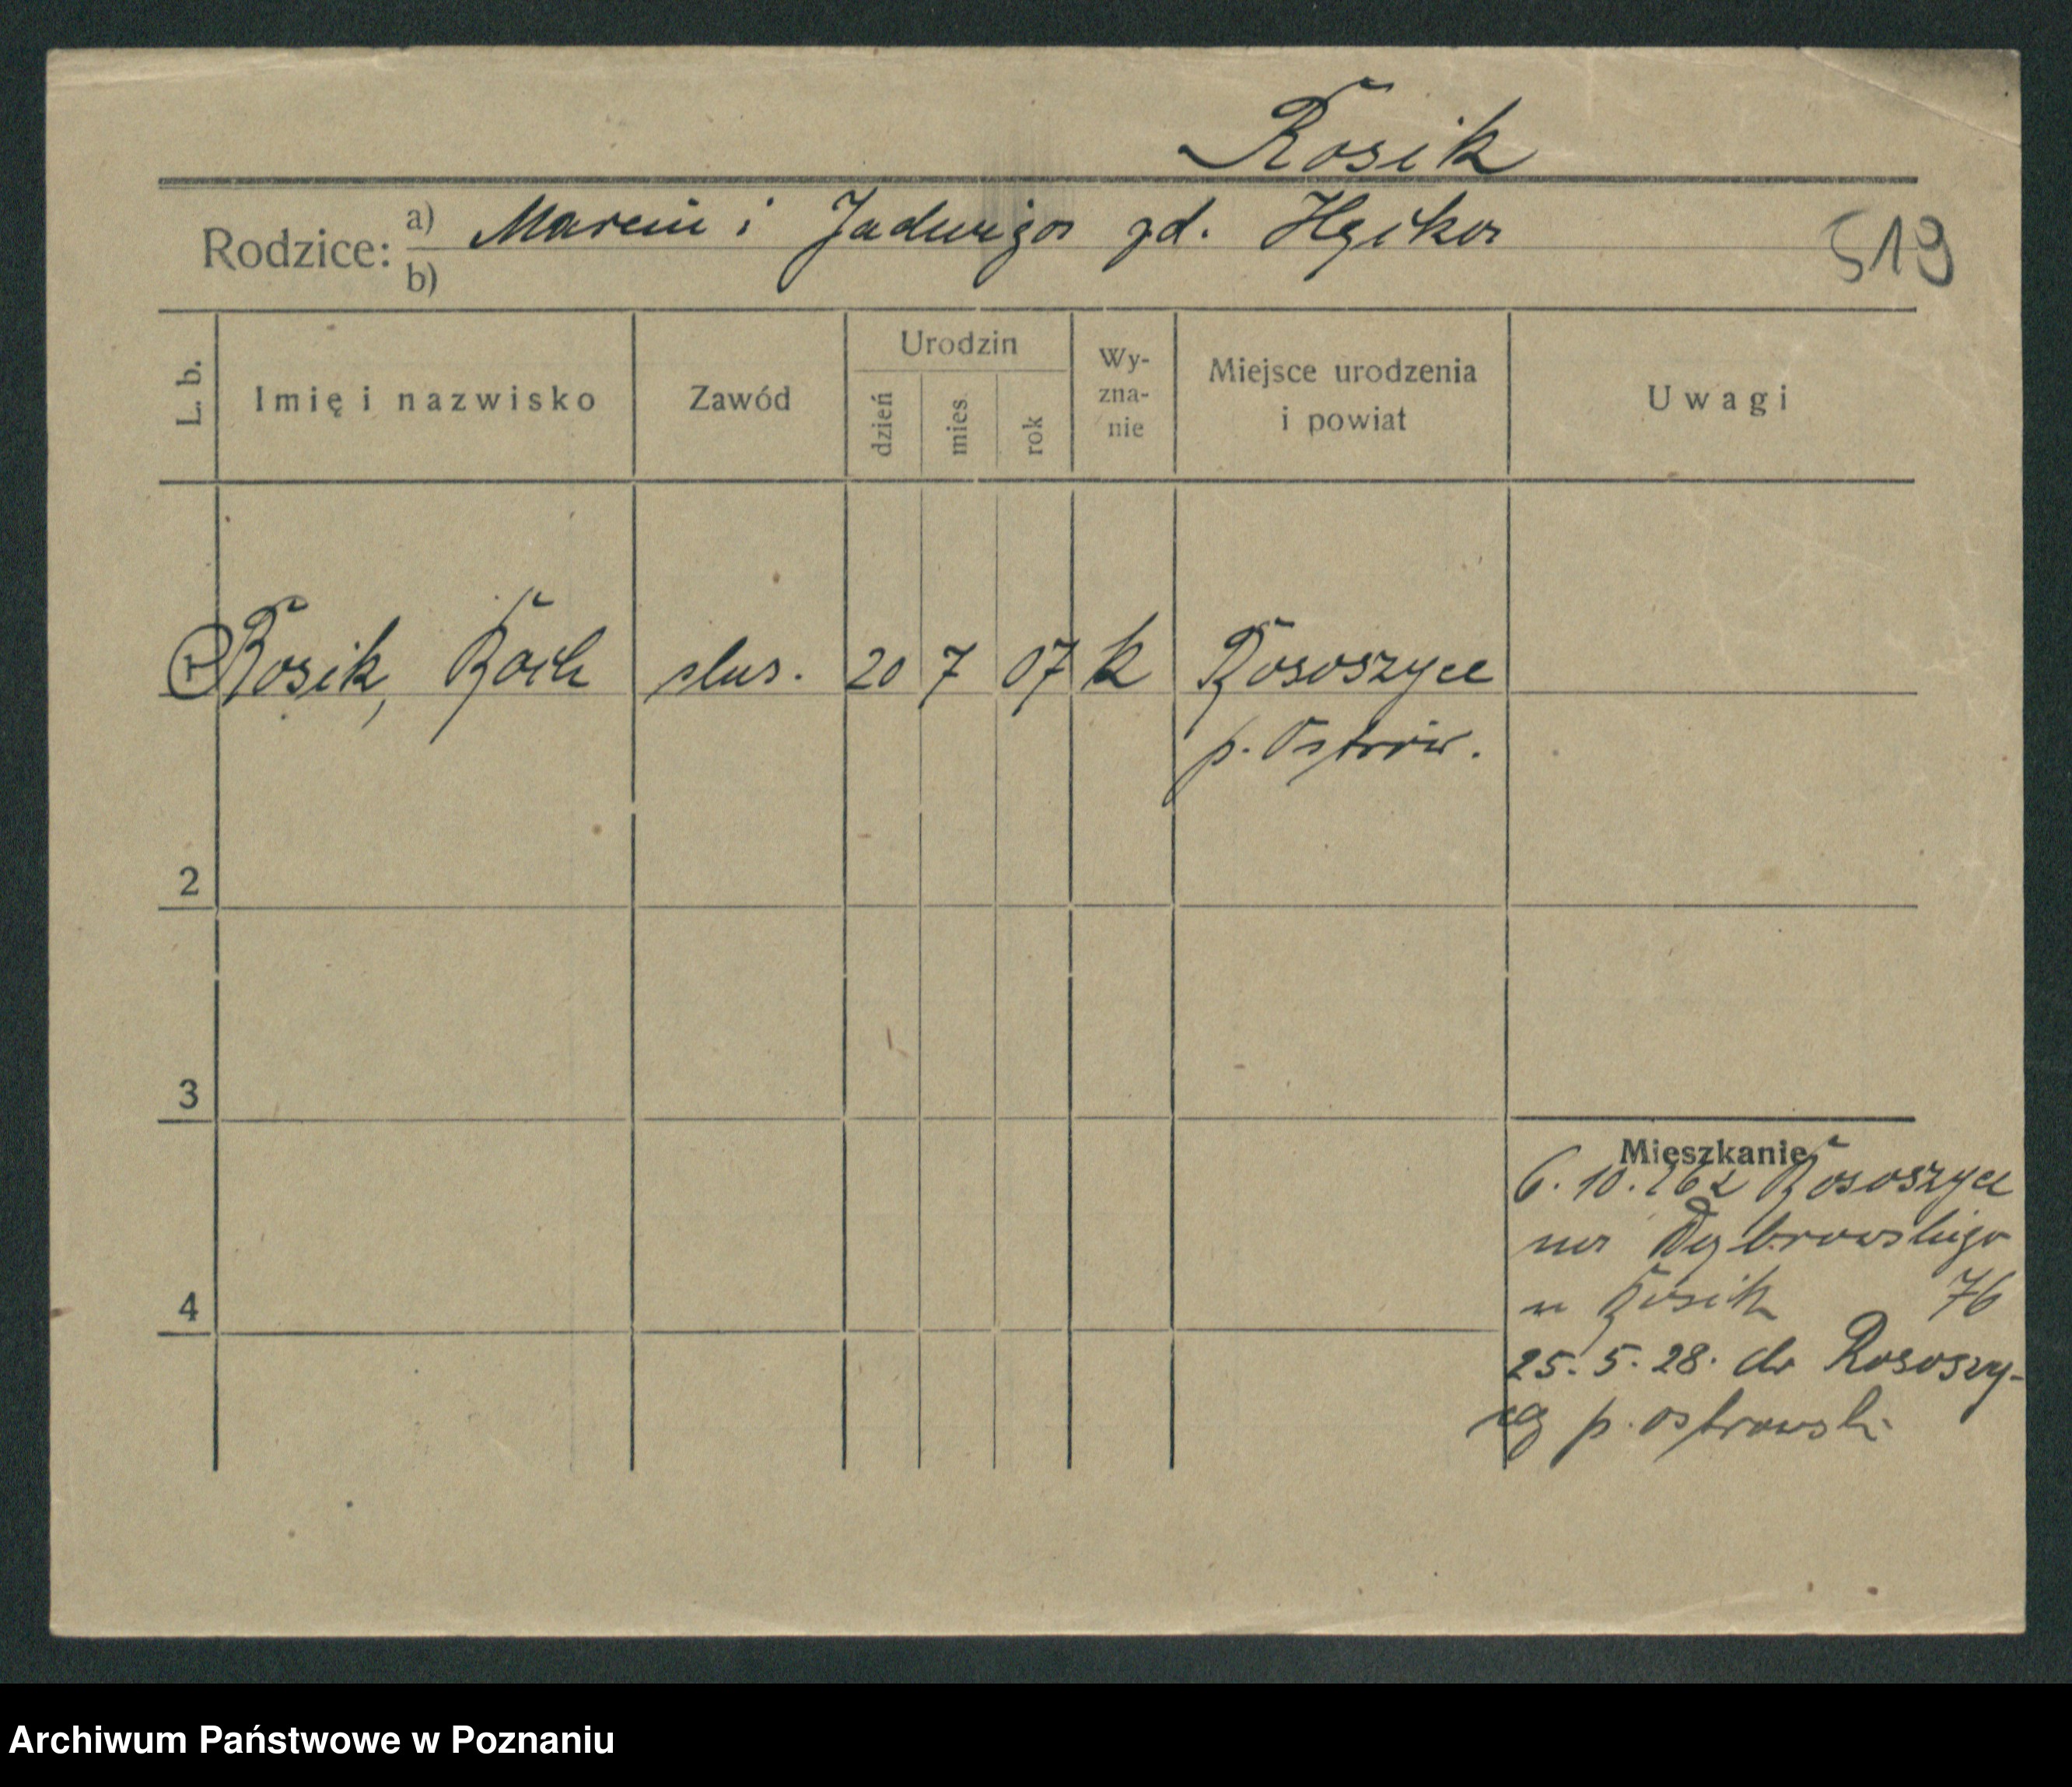 Rosik
Rodzice: a) Marcin i Jadwiga zd.
b)
519
L. b. Imię i nazwisko Zawód Urodzin dzień mies. rok Wy-zna-nie Miejsce urodzenia i powiat Uwagi
1 Rosik, Roch ślus. 20 7 07 k Rososzyce
p. Ostrów.
2
3
Mieszkanie
6. 10. 26 z Rososzyce
na Dąbrowskiego
u Rosik 76
4
25. 5. 28. do Rososzy-
cy p. ostrowski
Archiwum Państwowe w Poznaniu